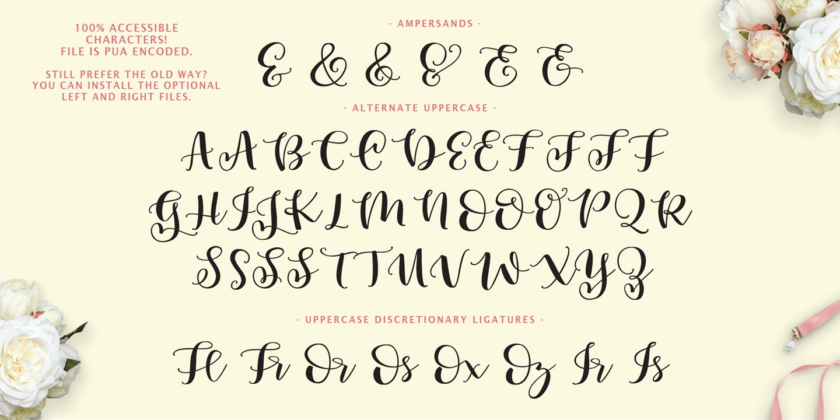 100% ACCESSIBLE
CHARACTERS!
FILE IS PUA ENCODED.
STILL PREFER THE OLD WAY?
YOU CAN INSTALL THE OPTIONAL
LEFT AND RIGHT FILES.
- AMPERSANDS -
& & & & & &
- ALTERNATE UPPERCASE -
A A B C C D E E F F F F
G H I J K L M N O O O P Q R
S S S S T T U V W X Y Z
- UPPERCASE DISCRETIONARY LIGATURES -
Fl Fr Or Os Ox Oz Ir Is